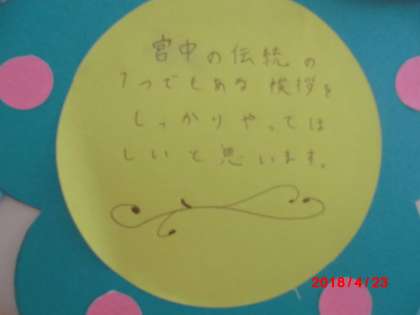 宮中の伝統の
1つでもある挨拶を
しっかりやってほ
しいと思います。
2018/4/23